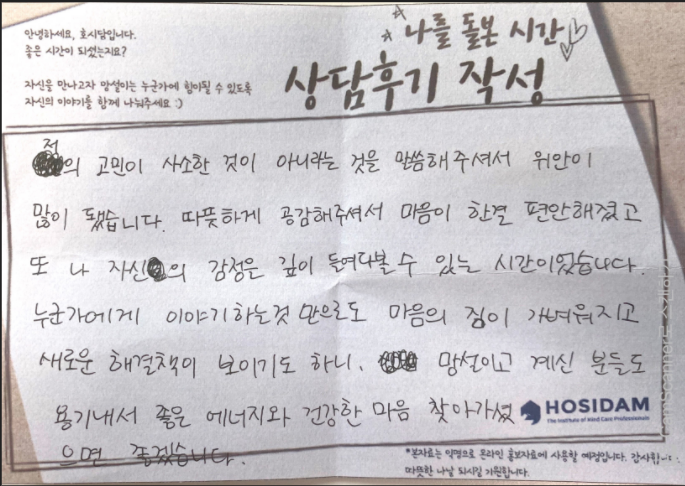 안녕하세요, 호시담입니다.
좋은 시간이 되셨는지요?
자신을 만나고자 망설이는 누군가에 힘이될 수 있도록
자신의 이야기를 함께 나눠주세요 :)
나를 돌본 시간
상담후기 작성
저의 고민이 사소한 것이 아니라는 것을 말씀해주셔서 위안이
많이 됐습니다. 따뜻하게 공감해주셔서 마음이 한결 편안해졌고
또 나 자신의 감정은 깊이 들여다볼 수 있는 시간이었습니다.
누군가에게 이야기하는것 만으로도 마음의 짐이 가벼워지고
새로운 해결책이 보이기도 하니, 망설이고 계신 분들도
용기내서 좋은 에너지와 건강한 마음 찾아가셨
으면 좋겠습니다.
HOSIDAM
The Institute of Mind Care Professionals
*본자료는 익명으로 온라인 홍보자료에 사용할 예정입니다. 감사합니다.
따뜻한 나날 되시길 기원합니다.